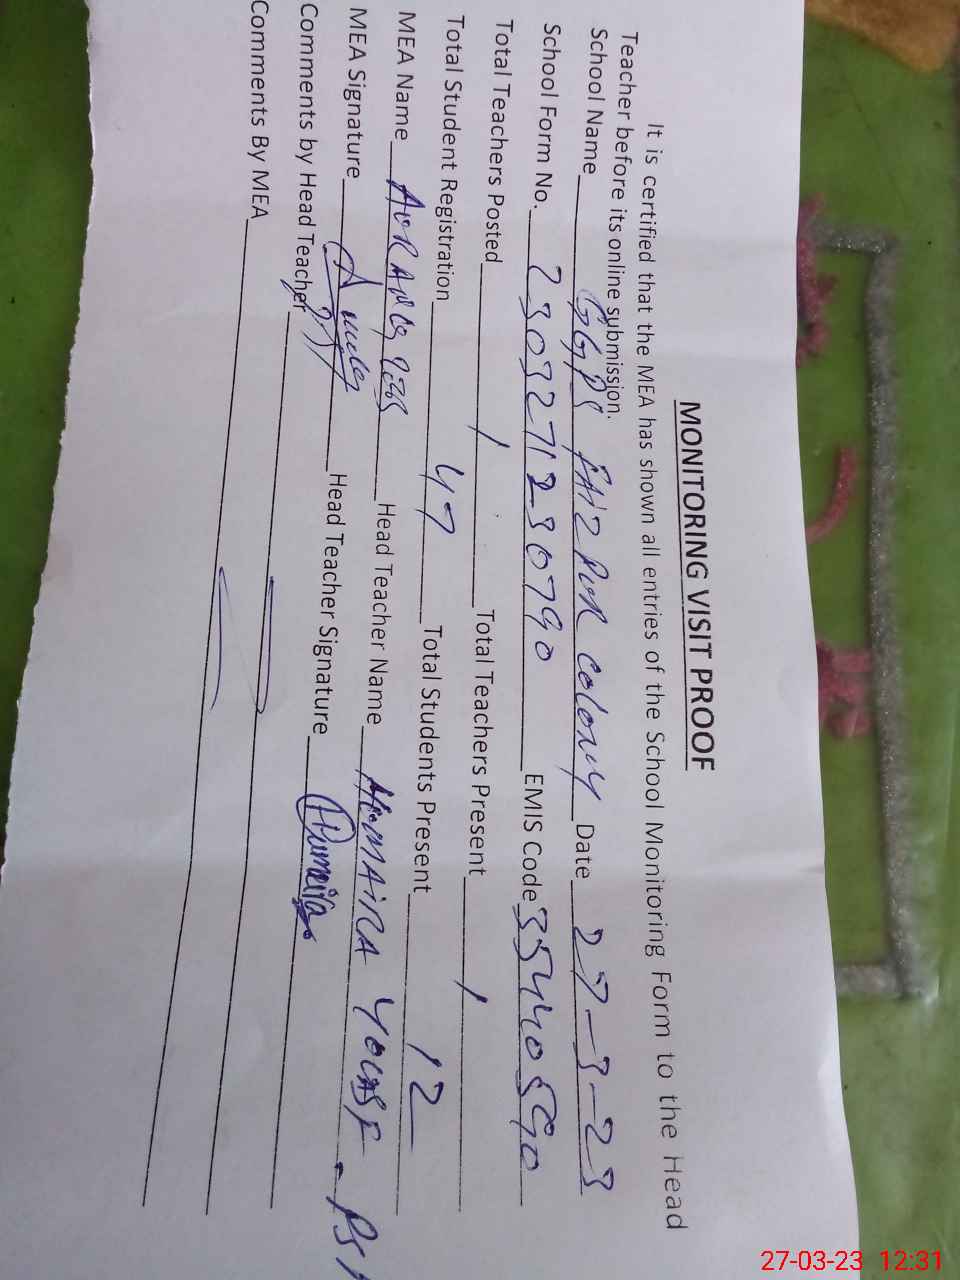 MONITORING VISIT PROOF
It is certified that the MEA has shown all entries of the School Monitoring Form to the Head
Teacher before its online submission.
School Name GGPS FAIZ PUR COLONY Date 27-3-23
School Form No. 2303271230790 EMIS Code 35440590
Total Teachers Posted 1 Total Teachers Present 1
Total Student Registration 47 Total Students Present 12
MEA Name Head Teacher Name HUMAIRA YOUASF
MEA Signature Head Teacher Signature Humaira
Comments by Head Teacher
Comments By MEA
27-03-23 12:31